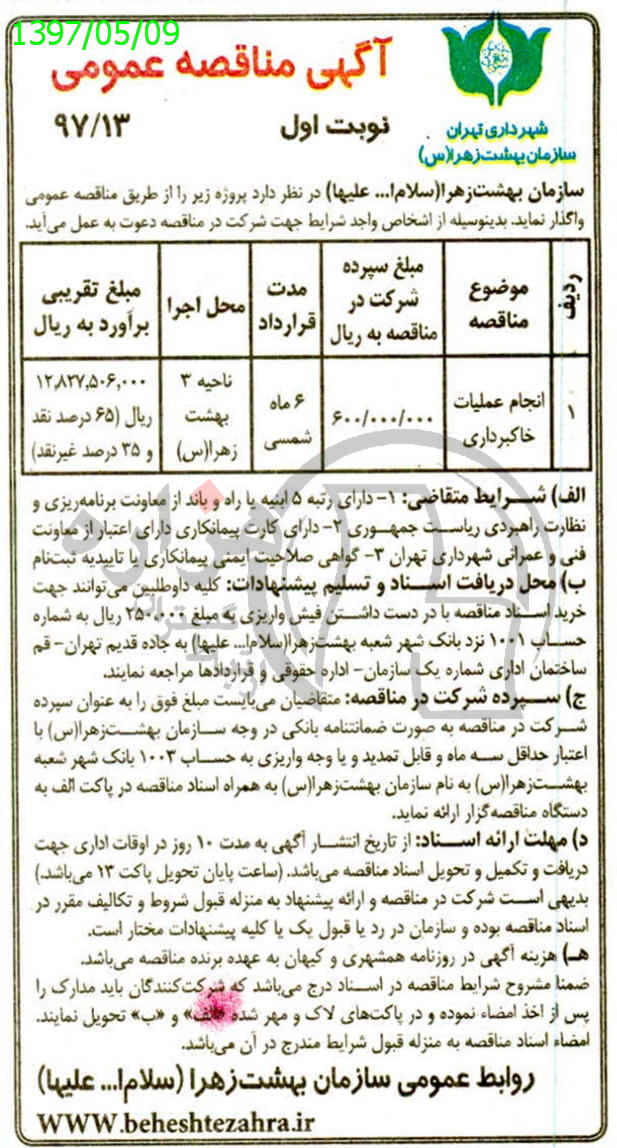 1397/05/09
آگهی مناقصه عمومی
نوبت اول
۹۷/۱۳
شهرداری تهران
سازمان بهشت‌زهرا(س)
سازمان بهشت‌زهرا(سلام‌ا... علیها) در نظر دارد پروژه زیر را از طریق مناقصه عمومی
واگذار نماید. بدینوسیله از اشخاص واجد شرایط جهت شرکت در مناقصه دعوت به عمل می‌آید.
ردیف
موضوع مناقصه
مبلغ سپرده شرکت در مناقصه به ریال
مدت قرارداد
محل اجرا
مبلغ تقریبی برآورد به ریال
۱
انجام عملیات خاکبرداری
۶۰۰/۰۰۰/۰۰۰
۶ ماه شمسی
ناحیه ۳ بهشت زهرا(س)
۱۲,۸۲۷,۵۰۶,۰۰۰ ریال (۶۵ درصد نقد و ۳۵ درصد غیرنقد)
الف) شرایط متقاضی: ۱- دارای رتبه ۵ ابنیه یا راه و باند از معاونت برنامه‌ریزی و
نظارت راهبردی ریاست جمهوری ۲- دارای کارت پیمانکاری دارای اعتبار از معاونت
فنی و عمرانی شهرداری تهران ۳- گواهی صلاحیت ایمنی پیمانکاری یا تاییدیه ثبت‌نام
ب) محل دریافت اسناد و تسلیم پیشنهادات: کلیه داوطلبین می‌توانند جهت
خرید اسناد مناقصه با در دست داشتن فیش واریزی به مبلغ ۲۵۰,۰۰۰ ریال به شماره
حساب ۱۰۰۱ نزد بانک شهر شعبه بهشت‌زهرا(سلام‌ا... علیها) به جاده قدیم تهران- قم
ساختمان اداری شماره یک سازمان- اداره حقوقی و قراردادها مراجعه نمایند.
ج) سپرده شرکت در مناقصه: متقاضیان می‌بایست مبلغ فوق را به عنوان سپرده
شرکت در مناقصه به صورت ضمانتنامه بانکی در وجه سازمان بهشت‌زهرا(س) با
اعتبار حداقل سه ماه و قابل تمدید و یا وجه واریزی به حساب ۱۰۰۳ بانک شهر شعبه
بهشت‌زهرا(س) به نام سازمان بهشت‌زهرا(س) به همراه اسناد مناقصه در پاکت الف به
دستگاه مناقصه‌گزار ارائه نماید.
د) مهلت ارائه اسناد: از تاریخ انتشار آگهی به مدت ۱۰ روز در اوقات اداری جهت
دریافت و تکمیل و تحویل اسناد مناقصه می‌باشد. (ساعت پایان تحویل پاکت ۱۳ می‌باشد.)
بدیهی است شرکت در مناقصه و ارائه پیشنهاد به منزله قبول شروط و تکالیف مقرر در
اسناد مناقصه بوده و سازمان در رد یا قبول یک یا کلیه پیشنهادات مختار است.
هـ) هزینه آگهی در روزنامه همشهری و کیهان به عهده برنده مناقصه می‌باشد.
ضمنا مشروح شرایط مناقصه در اسناد درج می‌باشد که شرکت‌کنندگان باید مدارک را
پس از اخذ امضاء نموده و در پاکت‌های لاک و مهر شده «الف» و «ب» تحویل نمایند.
امضاء اسناد مناقصه به منزله قبول شرایط مندرج در آن می‌باشد.
روابط عمومی سازمان بهشت‌زهرا (سلام‌ا... علیها)
WWW.beheshtezahra.ir